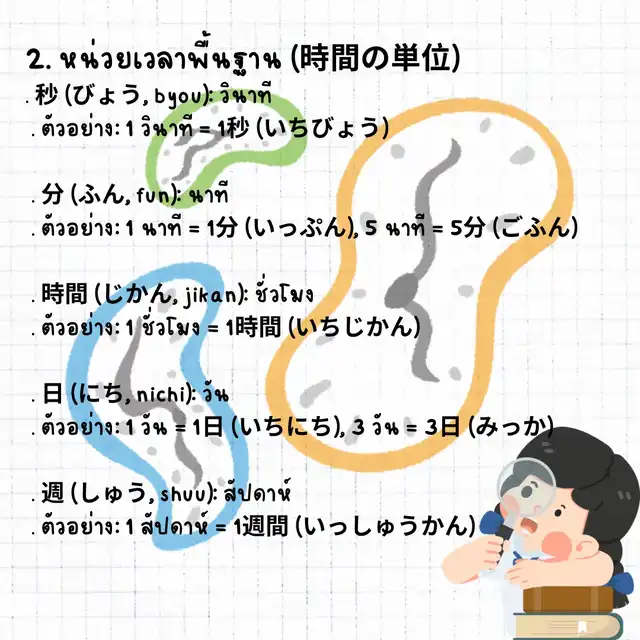 2. หน่วยเวลาพื้นฐาน (時間の単位)
. 秒 (びょう, byou): วินาที
. ตัวอย่าง: 1 วินาที = 1秒 (いちびょう)
. 分 (ふん, fun): นาที
. ตัวอย่าง: 1 นาที = 1分 (いっぷん), 5 นาที = 5分 (ごふん)
. 時間 (じかん, jikan): ชั่วโมง
. ตัวอย่าง: 1 ชั่วโมง = 1時間 (いちじかん)
. 日 (にち, nichi): วัน
. ตัวอย่าง: 1 วัน = 1日 (いちにち), 3 วัน = 3日 (みっか)
. 週 (しゅう, shuu): สัปดาห์
. ตัวอย่าง: 1 สัปดาห์ = 1週間 (いっしゅうかん)